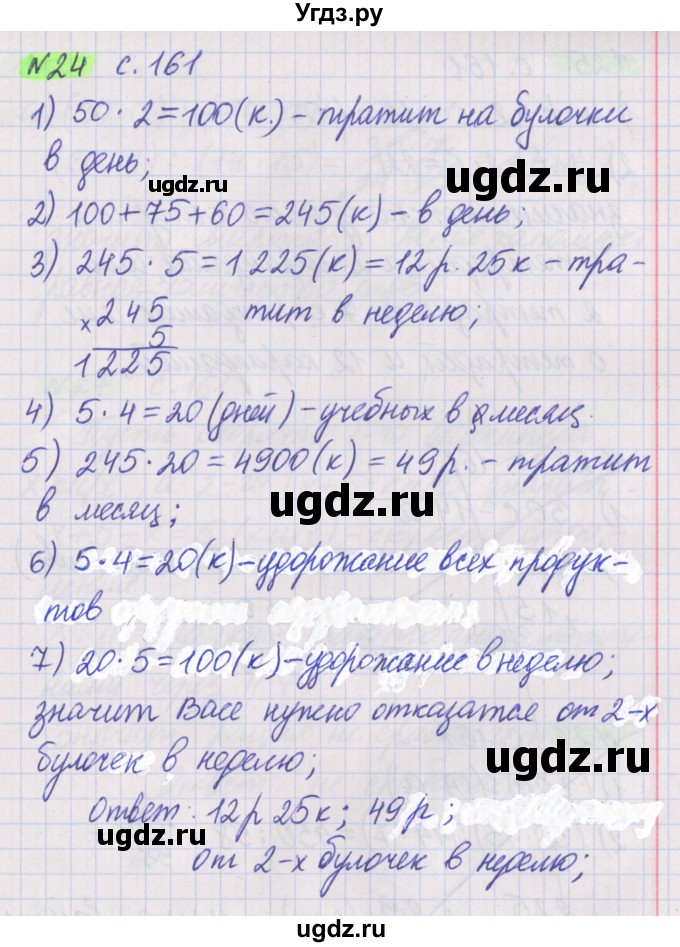 Угдз.ру
№24 с. 161
1) 50 · 2 = 100 (к.) – тратит на булочки
в день;
ugdz.ru
ugdz.ru
2) 100 + 75 + 60 = 245 (к) – в день;
3) 245 · 5 = 1 225 (к) = 12 р. 25 к – тра-
× 245 тит в неделю;
5
1225
ugdz.ru
4) 5 · 4 = 20 (дней) – учебных в месяц.
5) 245 · 20 = 4900 (к) = 49 р. – тратит
в месяц;
ugdz.ru
6) 5 · 4 = 20 (к) – удорожание всех продук-
тов
ugdz.ru
7) 20 · 5 = 100 (к) – удорожание в неделю;
значит Васе нужно отказатся от 2-х
булочек в неделю;
ugdz.ru
ugdz.ru
Ответ: 12 р 25 к; 49 р;
ugdz.ru
от 2-х булочек в неделю;
ugdz.ru